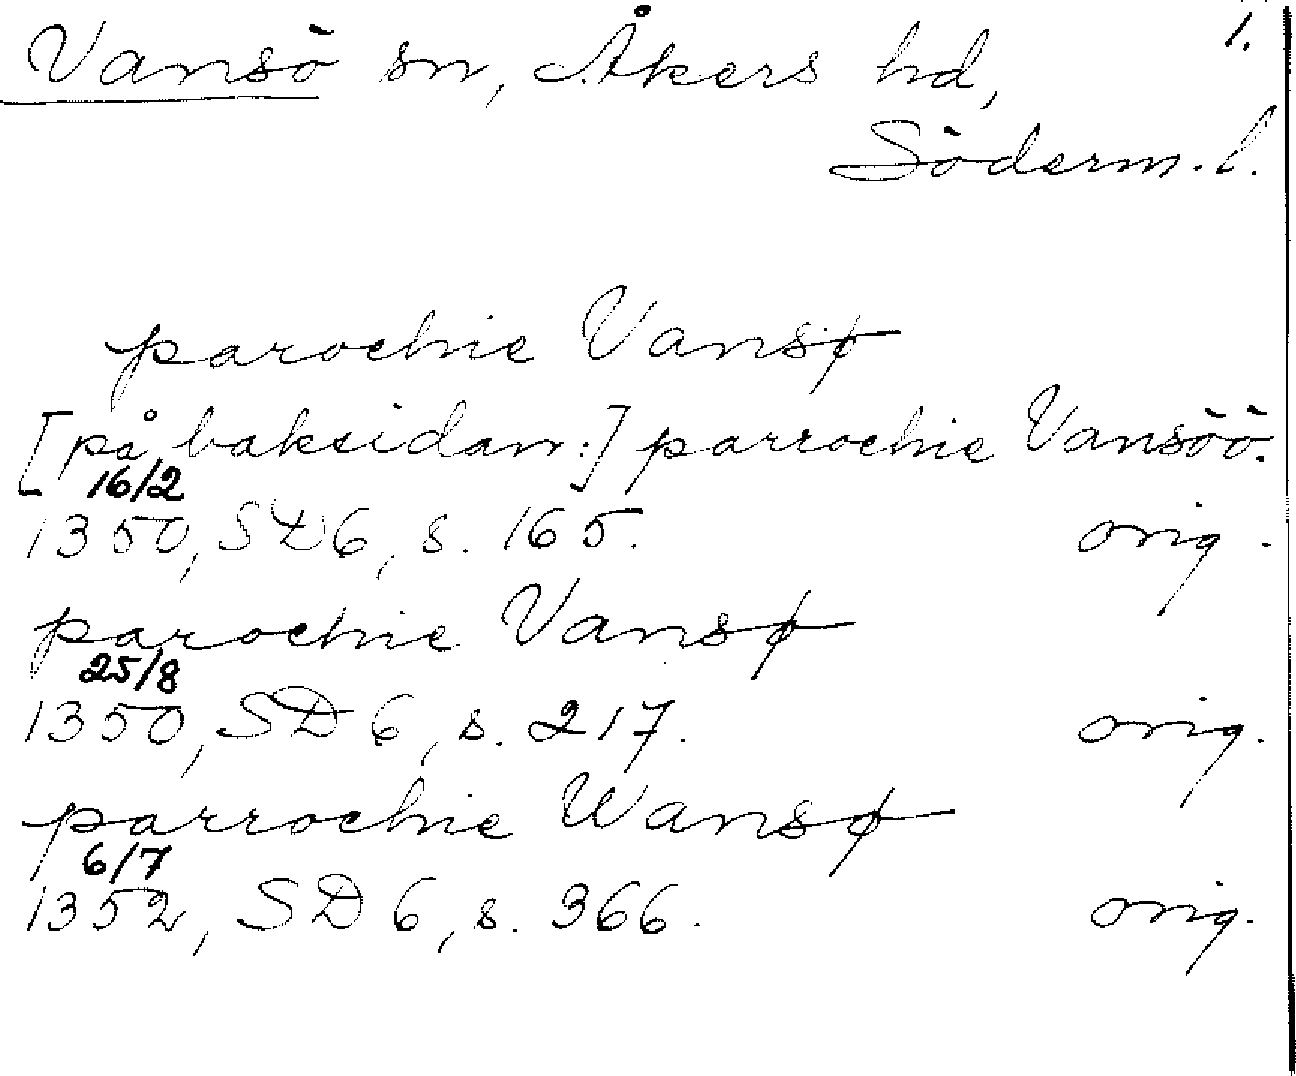 Vansö sn, Åkers hd, 1.
Söderm. l.
parochie Vansø
[på baksidan:] parrochie Vansöö.
16/2
1350, SD 6, s. 165. orig.
parochie Vansø
25/8
1350, SD 6, s. 217. orig.
parrochie Wansø
6/7
1352, SD 6, s. 366. orig.